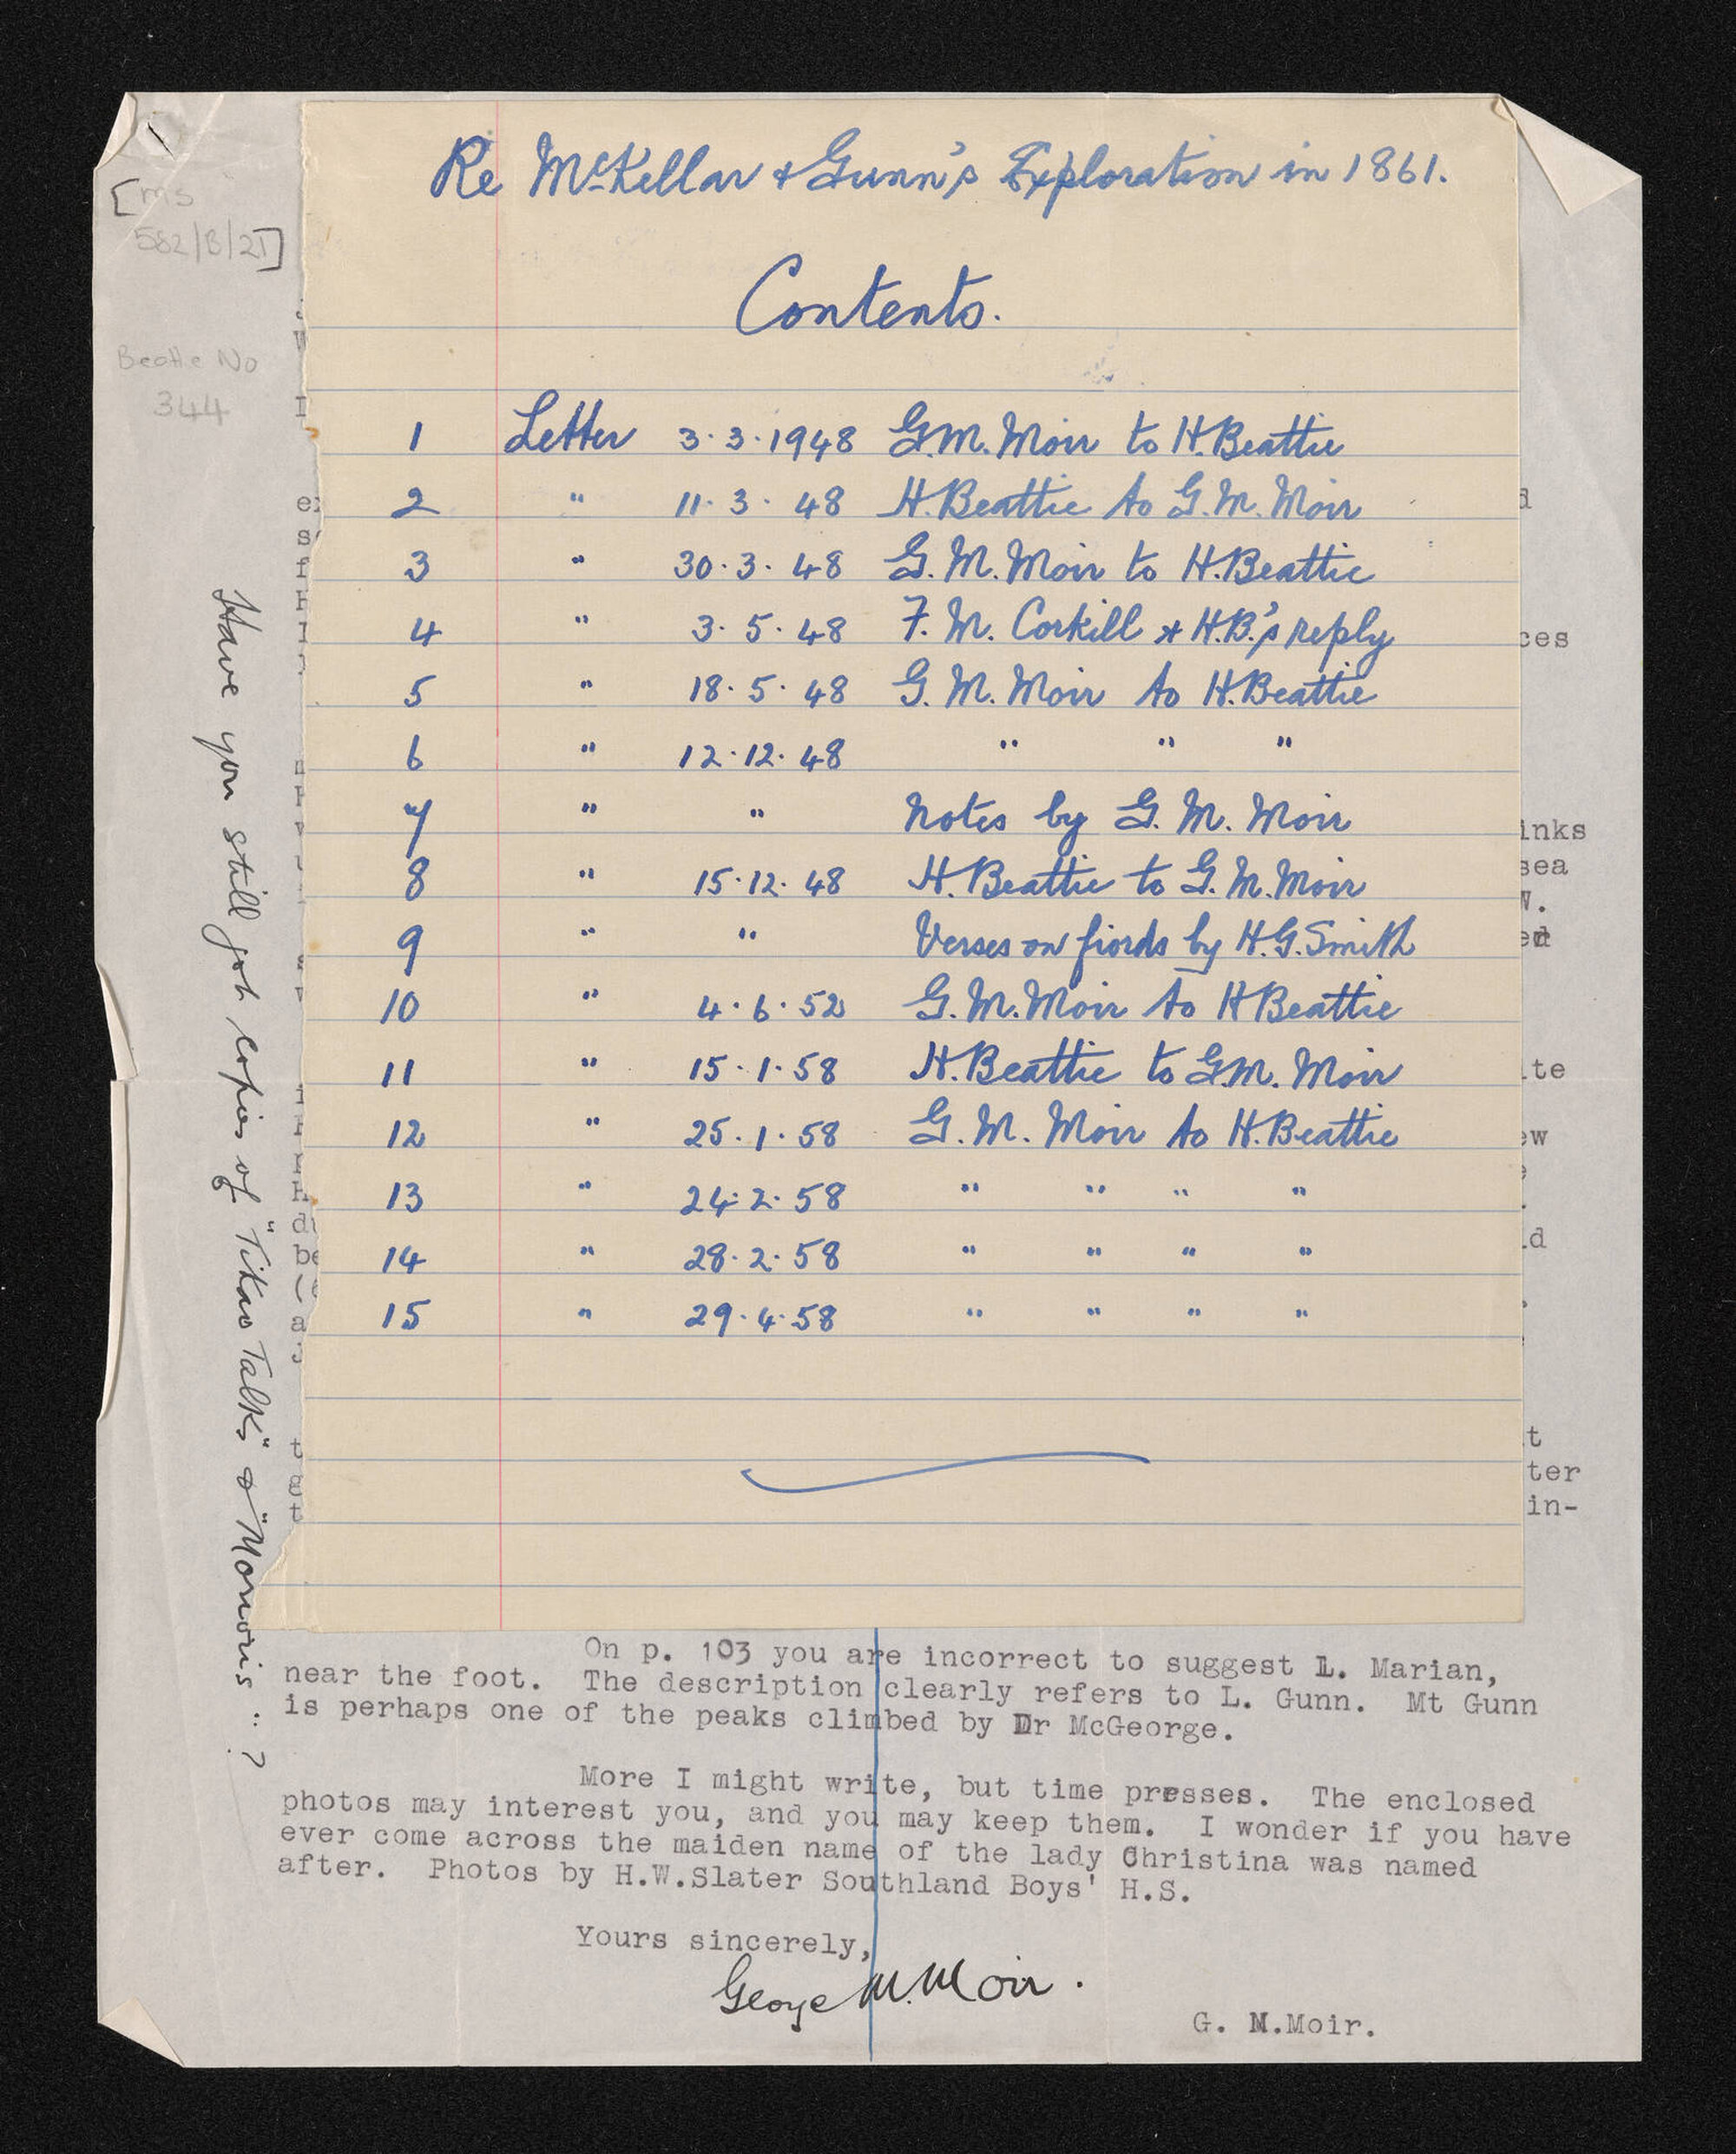 [MS
582/B/21]
Beattie No
344
Re McKellar & Gunn's Exploration in 1861.
Contents.
1 Letter 3.3.1948 G.M. Moir to H. Beattie
2 " 11.3.48 H. Beattie to G.M. Moir
3 " 30.3.48 G.M. Moir to H. Beattie
4 " 3.5.48 F.M. Corkill & H.B.'s reply
5 " 18.5.48 G.M. Moir to H. Beattie
6 " 12.12.48 " " "
7 " " Notes by G.M. Moir
8 " 15.12.48 H. Beattie to G.M. Moir
9 " " Verses on fiords by H.G. Smith
10 " 4.6.52 G.M. Moir to H Beattie
11 " 15.1.58 H. Beattie to G.M. Moir
12 " 25.1.58 G.M. Moir to H. Beattie
13 " 24.2.58 " " " "
14 " 28.2.58 " " " "
15 " 29.4.58 " " " "
Have you still got copies of "Tikao Talks" & "Morioris" ?
ces
inks
sea
W.
ed
ter
in-
On p. 103 you are incorrect to suggest L. Marian,
near the foot. The description clearly refers to L. Gunn. Mt Gunn
is perhaps one of the peaks climbed by Dr McGeorge.
More I might write, but time presses. The enclosed
photos may interest you, and you may keep them. I wonder if you have
ever come across the maiden name of the lady Christina was named
after. Photos by H.W.Slater Southland Boys' H.S.
Yours sincerely,
George M. Moir.
G. M.Moir.